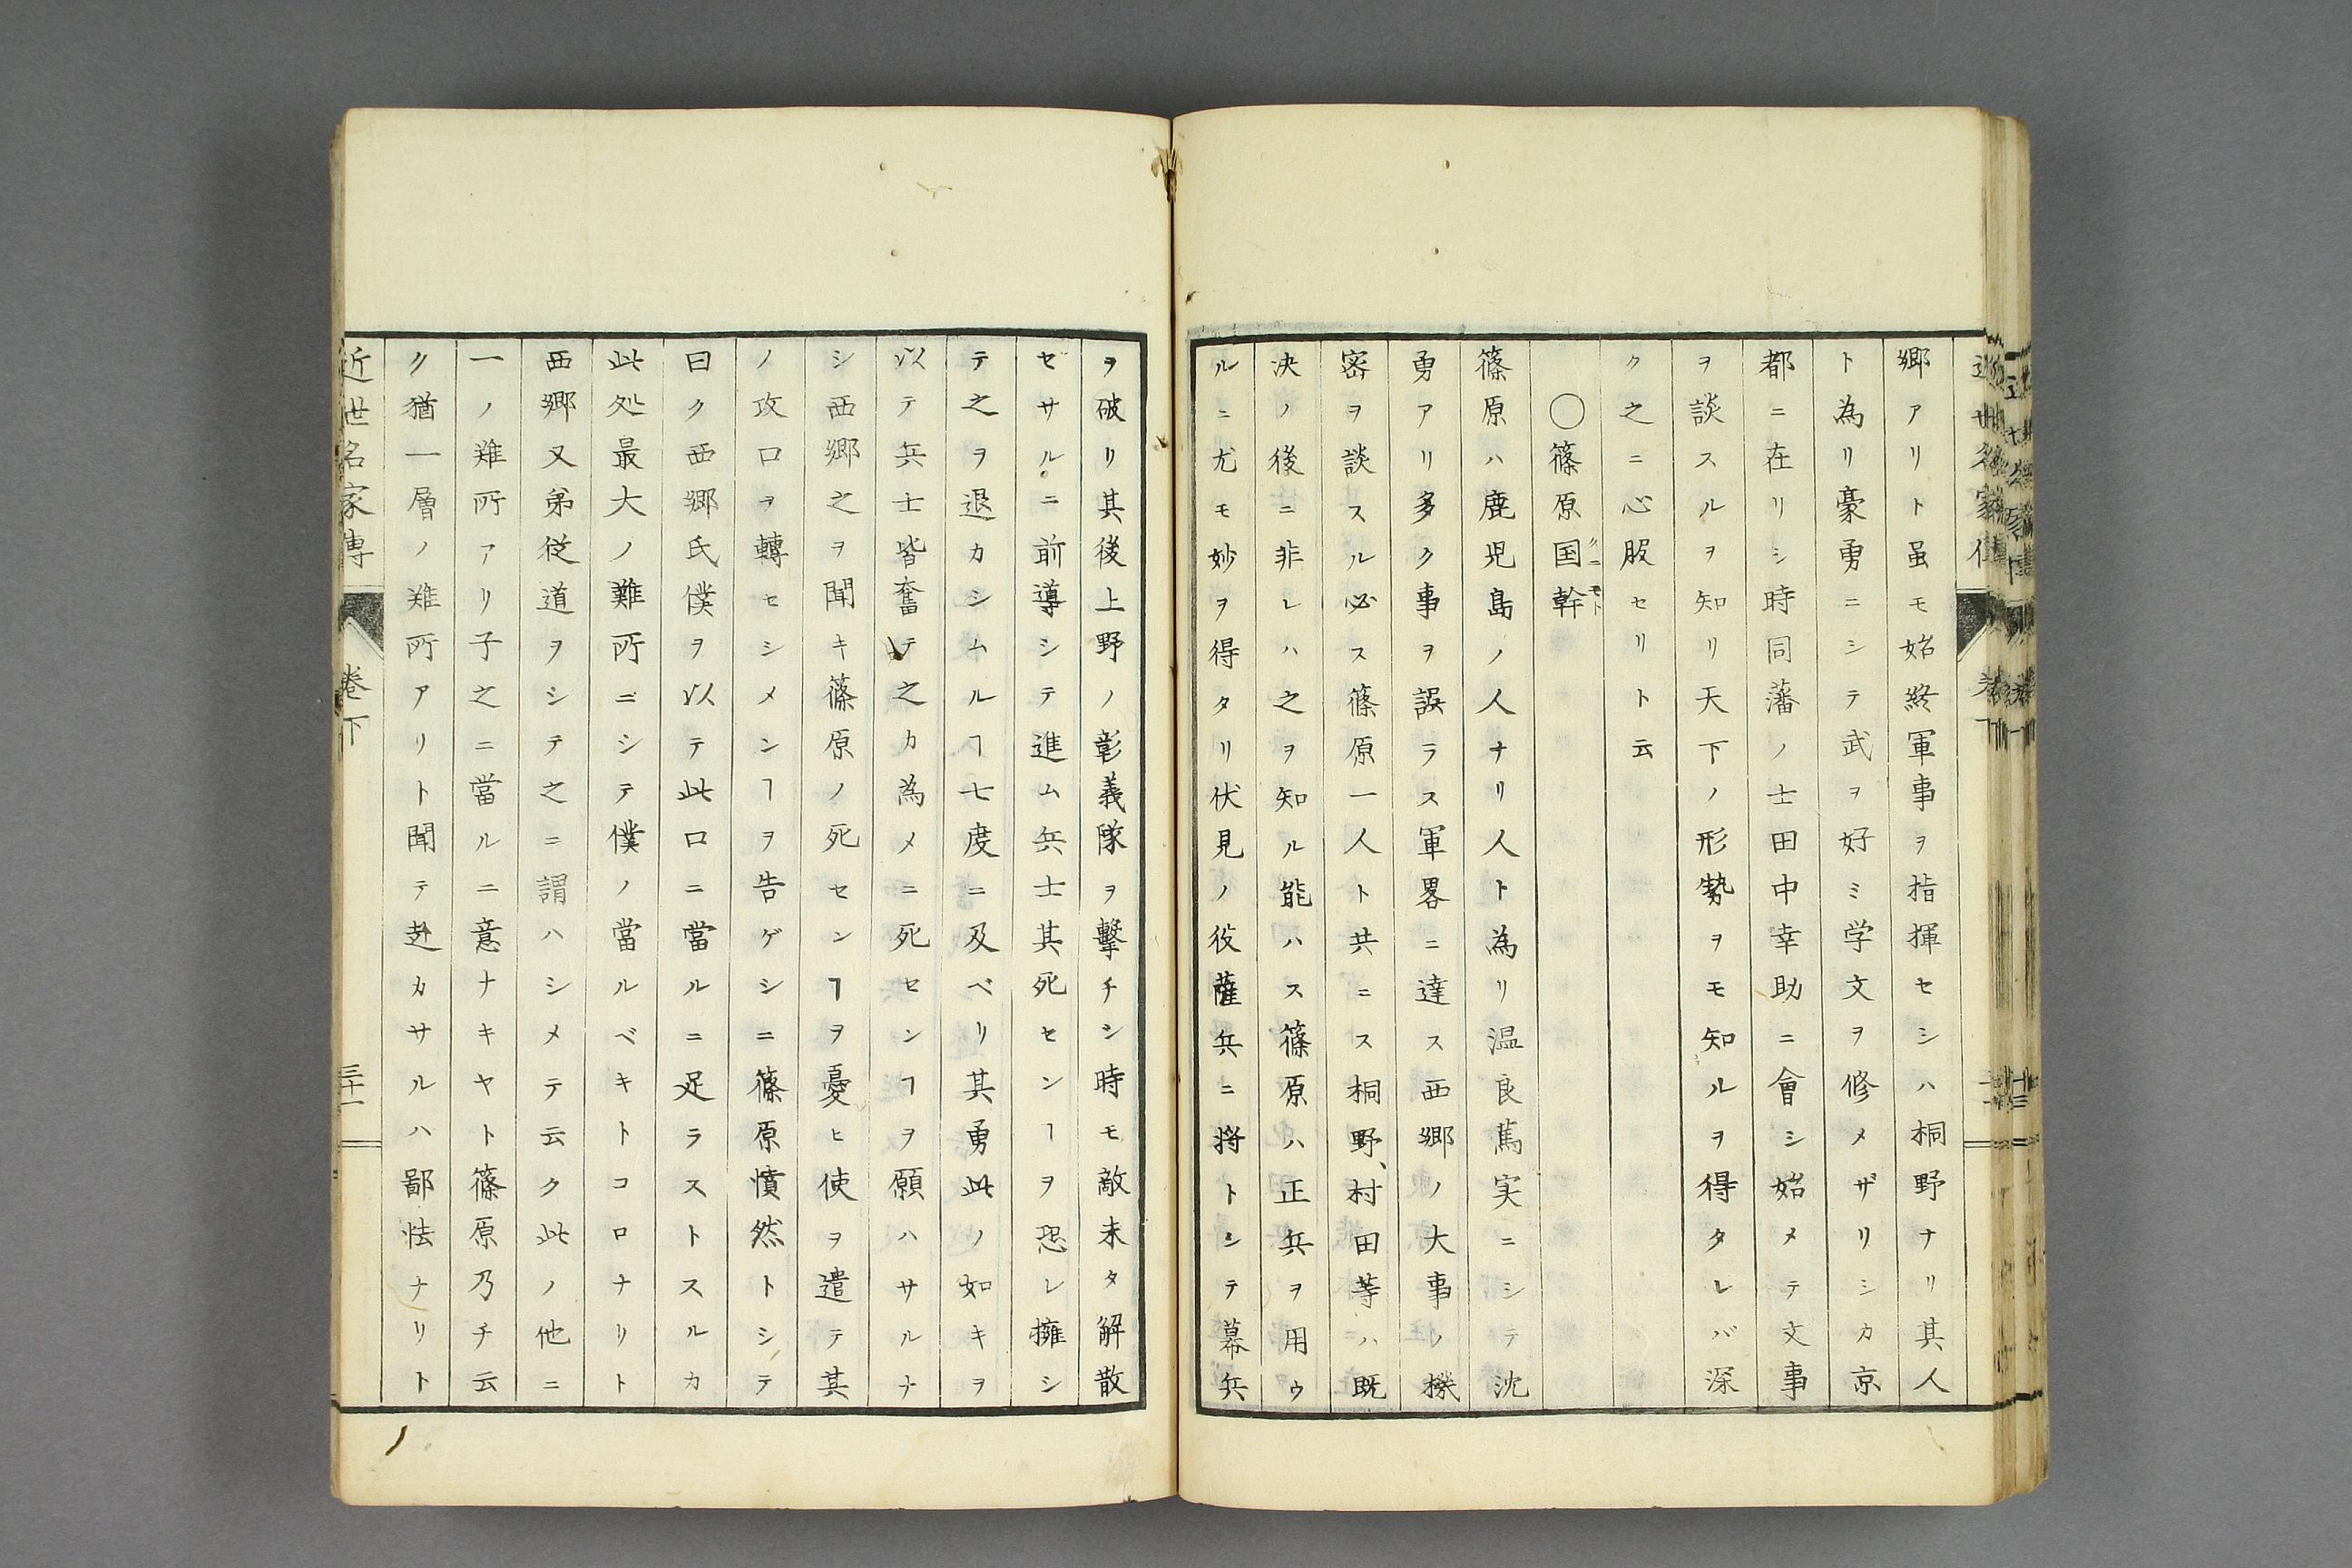 郷アリト虽モ始終軍事ヲ指揮セシハ桐野ナリ其人
ト為リ豪勇ニシテ武ヲ好ミ学文ヲ修メザリシカ京
都ニ在リシ時同藩ノ士田中幸助ニ會シ始メテ文事
ヲ談スルヲ知リ天下ノ形勢ヲモ知ルヲ得タレバ深
ク之ニ心服セリト云
〇篠原国幹
クニモト
篠原ハ鹿児島ノ人ナリ人ト為リ温良篤実ニシテ沈
勇アリ多ク事ヲ誤ラス軍畧ニ達ス西郷ノ大事ノ機
密ヲ談スル必ス篠原一人ト共ニス桐野、村田等ハ既
决ノ後ニ非レハ之ヲ知ル能ハス篠原ハ正兵ヲ用ウ
ルニ尤モ妙ヲ得タリ伏見ノ役薩兵ニ将トシテ幕兵
ヲ破リ其後上野ノ彰義隊ヲ撃チシ時モ敵未タ解散
セサルニ前導シテ進ム兵士其死センヿヲ恐レ擁シ
テ之ヲ退カシムルヿ七度ニ及ベリ其勇此ノ如キヲ
以テ兵士皆奮テ之カ為メニ死センヿヲ願ハサルナ
シ西郷之ヲ聞キ篠原ノ死センヿヲ憂ヒ使ヲ遣テ其
ノ攻口ヲ轉セシメンヿヲ告ゲシニ篠原憤然トシテ
曰ク西郷氏僕ヲ以テ此口ニ當ルニ足ラストスルカ
此処最大ノ難所ニシテ僕ノ當ルベキトコロナリト
西郷又弟従道ヲシテ之ニ謂ハシメテ云ク此ノ他ニ
一ノ難所アリ子之ニ當ルニ意ナキヤト篠原乃チ云
ク猶一層ノ難所アリト聞テ赴カサルハ鄙怯ナリト
近世名家傳 巻下 三十一